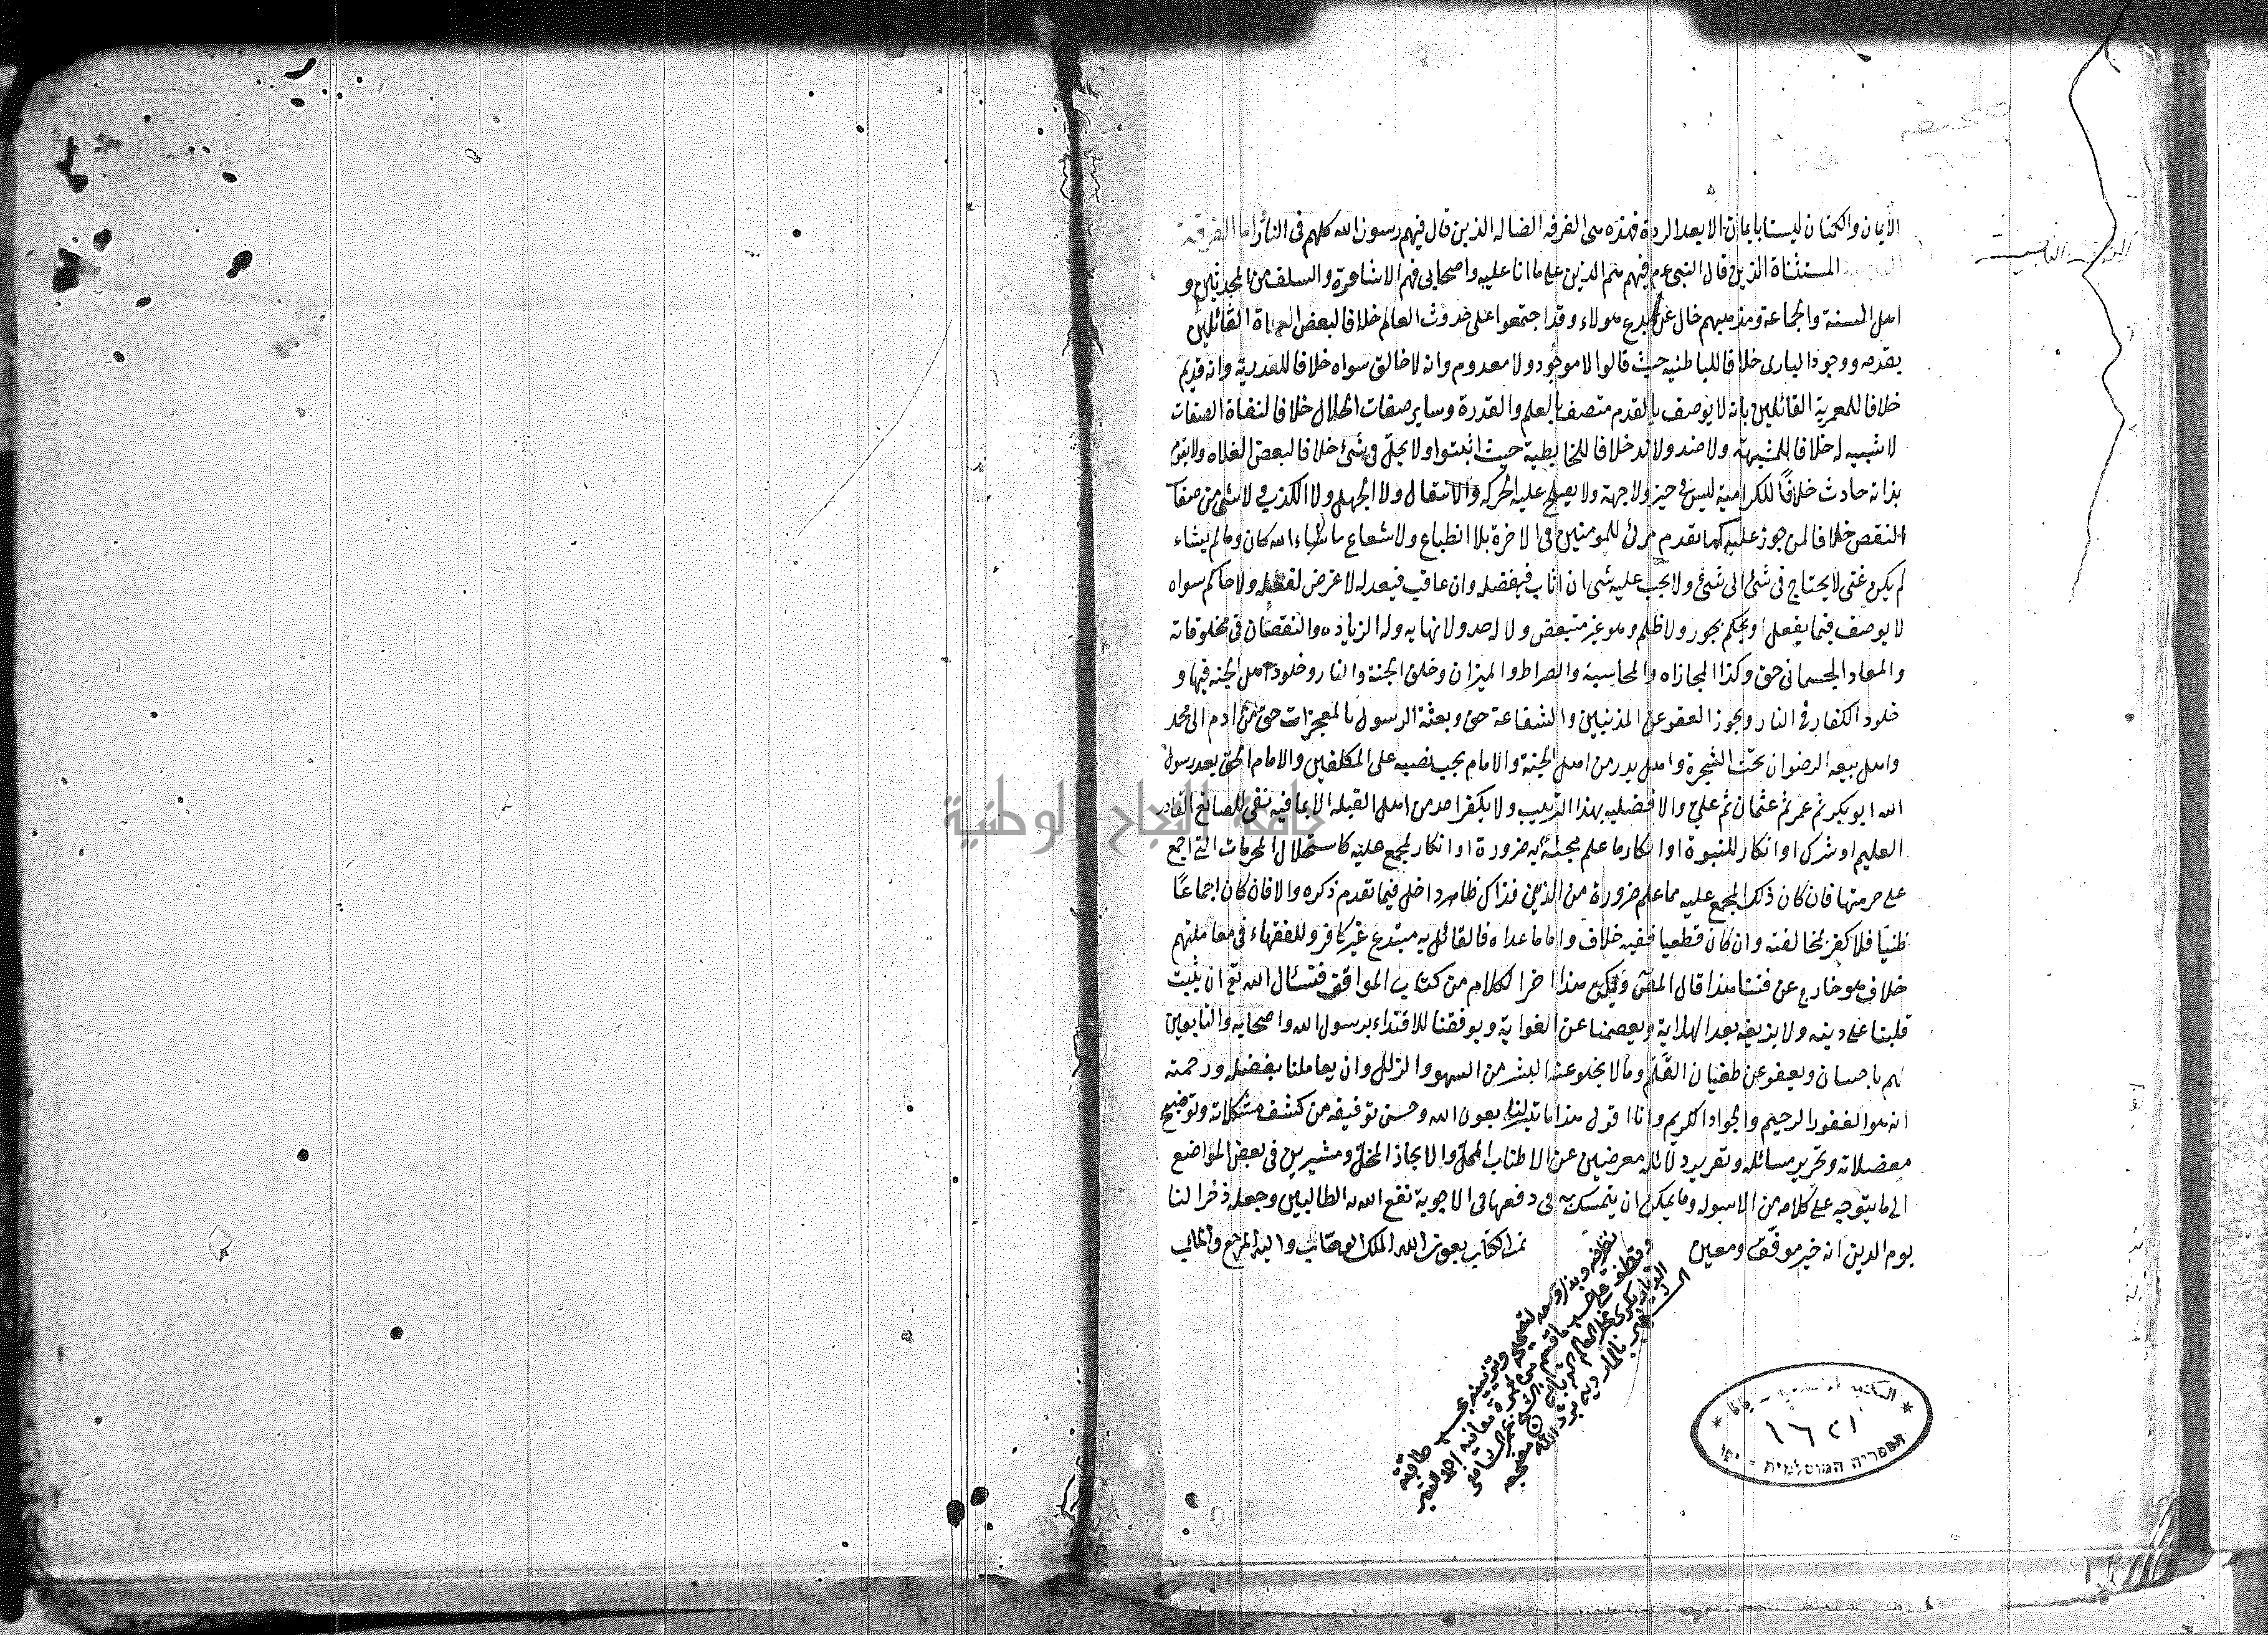 الايمان والكتمان ليستا بايمان الا بعد الردة فهذه هى الفرقه الضاله الذين قال فيهم رسول الله كلهم فى النار واما الفرقة
المستثناة الذين قال النبى عم فيهم هم الذين على ما انا عليه واصحابى فهم الاشاعرة والسلف من المحدثين و
اهل السنة والجماعة ومذهبهم خال عن بدع هولاء وقد اجتمعوا على حدوث العالم خلافا لبعض الغلاة القائلين
بقدمه ووجود البارى خلافا للباطنيه حيث قالوا لا موجود ولا معدوم وانه لا خالق سواه خلافا للقدرية وانه قديم
خلافا للمعمرية القائلين بانه لا يوصف بالقدم متصف بالعلم والقدرة وساير صفات الجلال خلافا لنفاة الصفات
لا شبيه له خلافا للمشبهة ولا ضد ولا ند خلافا للخابطية حيث اثبتوا ولا يحل فى شئ خلافا لبعض الغلاه ولا يقوم
بذاته حادث خلافًا للكرامية ليس فى حيز ولا جهة ولا يصح عليه الحركه والانتقال ولا الجهل ولا الكذب ولا شى من صفات
النقص خلافا لمن جوز عليه كما تقدم مرئ للمومنين فى الاخرة بلا انطباع ولا شعاع ما شاء الله كان وما لم يشاء
لم يكن غنى لا يحتاج فى شئ الى شئ ولا يجب عليه شى ان اثاب فبفضله وان عاقب فبعدله لا غرض لفعله ولا حاكم سواه
لا يوصف فيما يفعل او يحكم بجور ولا ظلم وهو غير متبعض ولا له حد ولا نهايه وله الزياده والنقصان فى مخلوقاته
والمعاد الجسمانى حق وكذا المجازاه والمحاسبة والصراط والميزان وخلق الجنة والنار وخلود اهل الجنه فيها و
خلود الكفار فى النار ويجوز العفو عن المذنبين والشفاعة حق وبعثة الرسول بالمعجزات حق من ادم الى محمد
واهل بيعه الرضوان تحت الشجرة واهل بدر من اهل الجنة والامام يجب نصبه على المكلفين والامام الحق بعد رسول
الله ابو بكر ثم عمر ثم عثمان ثم علي والافضليه بهذا الترتيب ولا يكفر احد من اهل القبله الا بما فيه نفى للصانع القادر
العليم او شرك او انكار للنبوة او انكار ما علم مجئه به ضرورة او انكار لمجمع عليه كاستحلال المحرمات التى اجمع
على حرمتها فان كان ذلك المجمع عليه مما علم ضرورة من الدين فذاك ظاهر داخل فيما تقدم ذكره والا فان كان اجماعًا
ظنيًا فلا كفر بمخالفته وان كان قطعيا ففيه خلاف واما ما عداه فالقائل به مبتدع غير كافر وللفقهاء فى معاملتهم
خلاف هو خارج عن فننا هذا قال المص وليكن هذا اخر الكلام من كتاب المواقف فنسئال الله تع ان يثبت
قلبنا على دينه ولا يزيغه بعد الهداية ويعصمنا عن الغواية ويوفقنا للاقتداء برسول الله واصحابه والتابعين
لهم باحسان ويعفو عن طغيان القلم وما لا يخلو عنه البشر من السهو والزلل وان يعاملنا بفضله ورحمته
انه هو الغفور الرحيم والجواد الكريم وانا اقول هذا ما تيسر لنا بعون الله وحسن توفيقه من كشف مشكلاته وتوضيح
معضلاته وتحرير مسائله وتقرير دلائله معرضين عن الاطناب الممل والايجاز المخل ومشيرين فى بعض المواضع
الى ما يتوجه على كلامه من الاسوله وما يمكن ان يتمسك به فى دفعها فى الاجوبة نفع الله به الطالبين وجعله ذخرا لنا
يوم الدين انه خير موفق ومعين تم الكتاب بعون الله الملك الوهاب واليه المرجع والمآب
١٦٢١
הספריה המוסלמית - יפו
جامعة النجاح الوطنية